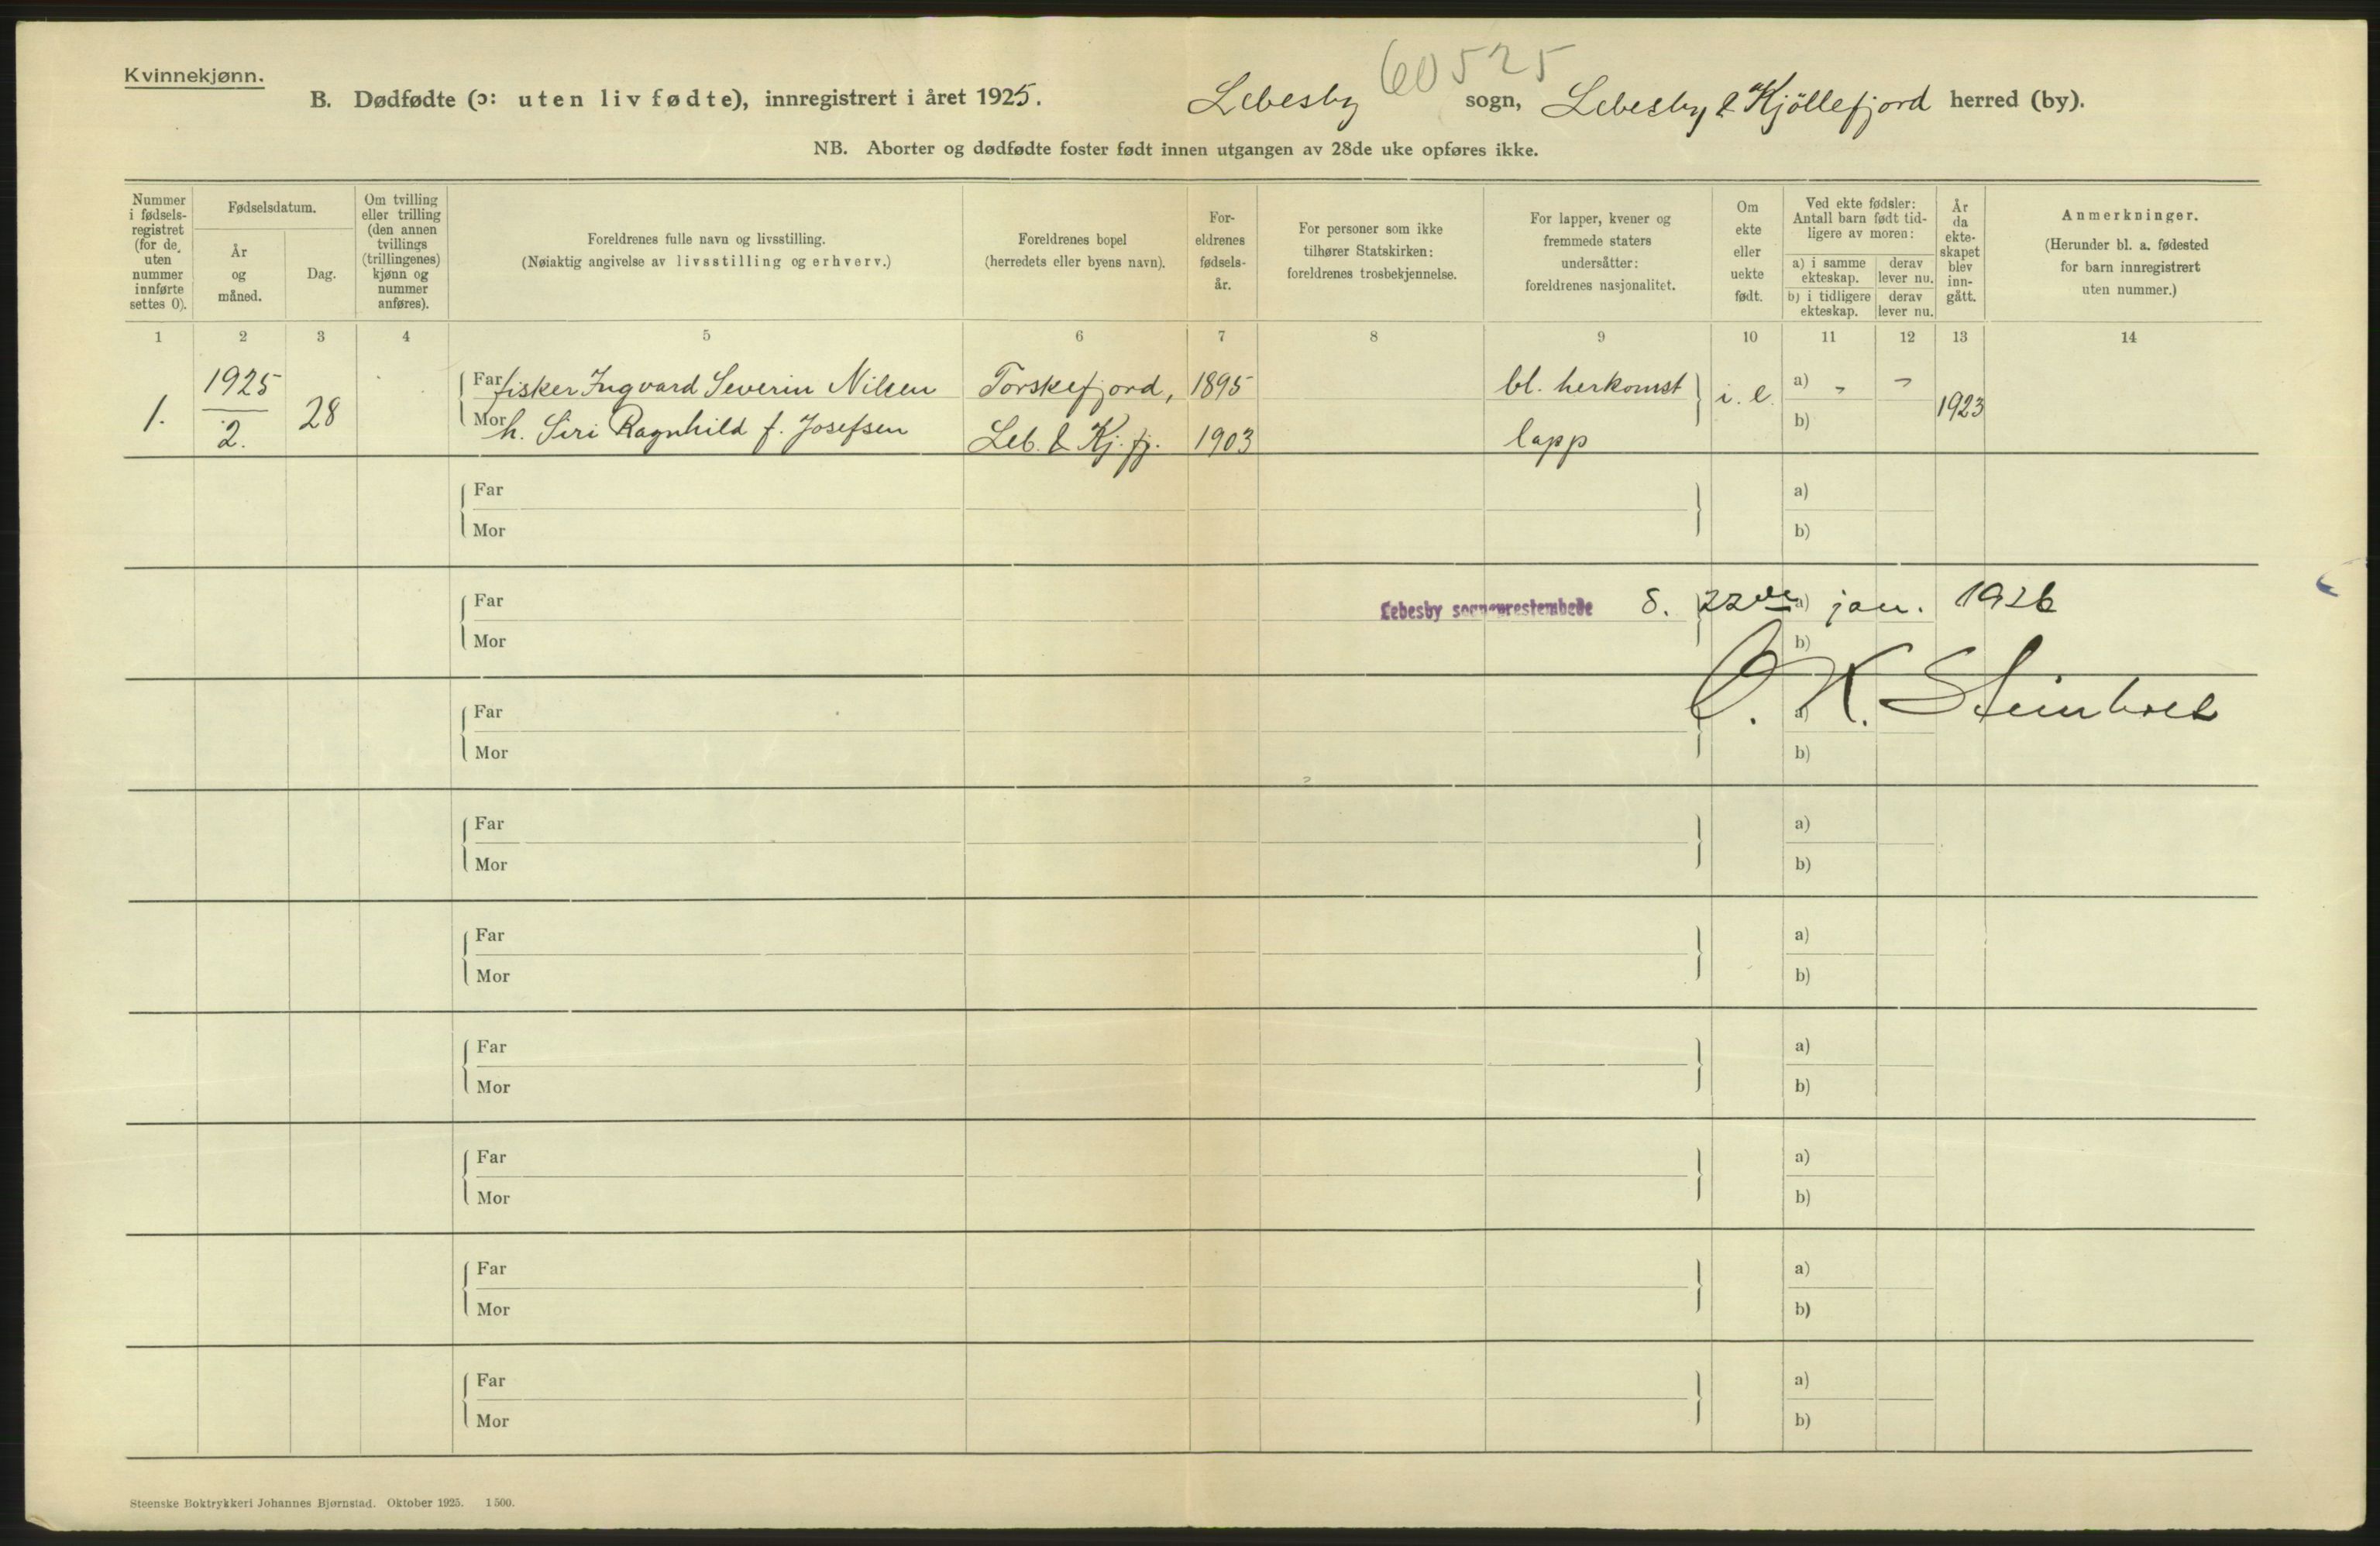 Kvinnekjønn.
60525
B. Dødfødte (ɔ: uten liv fødte), innregistrert i året 1925. Lebesby sogn, Lebesby & Kjöllefjord herred (by).
NB. Aborter og dødfødte foster født innen utgangen av 28de uke opføres ikke.
Nummer i fødsels-registret (for de uten nummer innførte settes 0).
Fødselsdatum.
År og måned.
Dag.
Om tvilling eller trilling (den annen tvillings (trillingenes) kjønn og nummer anføres).
Foreldrenes fulle navn og livsstilling.
(Nøiaktig angivelse av livsstilling og erhverv.)
Foreldrenes bopel
(herredets eller byens navn).
For-eldrenes fødsels-år.
For personer som ikke tilhører Statskirken: foreldrenes trosbekjennelse.
For lapper, kvener og fremmede staters undersåtter: foreldrenes nasjonalitet.
Om ekte eller uekte født.
Ved ekte fødsler: Antall barn født tid-ligere av moren:
a) i samme ekteskap.
derav lever nu.
b) i tidligere ekteskap.
derav lever nu.
År da ekte-skapet blev inn-gått.
Anmerkninger.
(Herunder bl. a. fødested for barn innregistrert uten nummer.)
1 2 3 4 5 6 7 8 9 10 11 12 13 14
1925 Far fisker Ingvard Severin Nilsen Torskefjord, 1895 bl. herkomst a) " "
1. 28 i. e. 1923
2. Mor h. Siri Ragnhild f. Josefsen Leb. & Kj. fj. 1903 lapp b)
Far a)
Mor b)
Far Lebesby sogneprestembede d. 22de a) jan. 1926
Mor b)
O. K. Steinholt
Far a)
Mor b)
Far a)
Mor b)
Far a)
Mor b)
Far a)
Mor b)
Far a)
Mor b)
Far a)
Mor b)
Far a)
Mor b)
Steenske Boktrykkeri Johannes Bjørnstad. Oktober 1925. 1500.